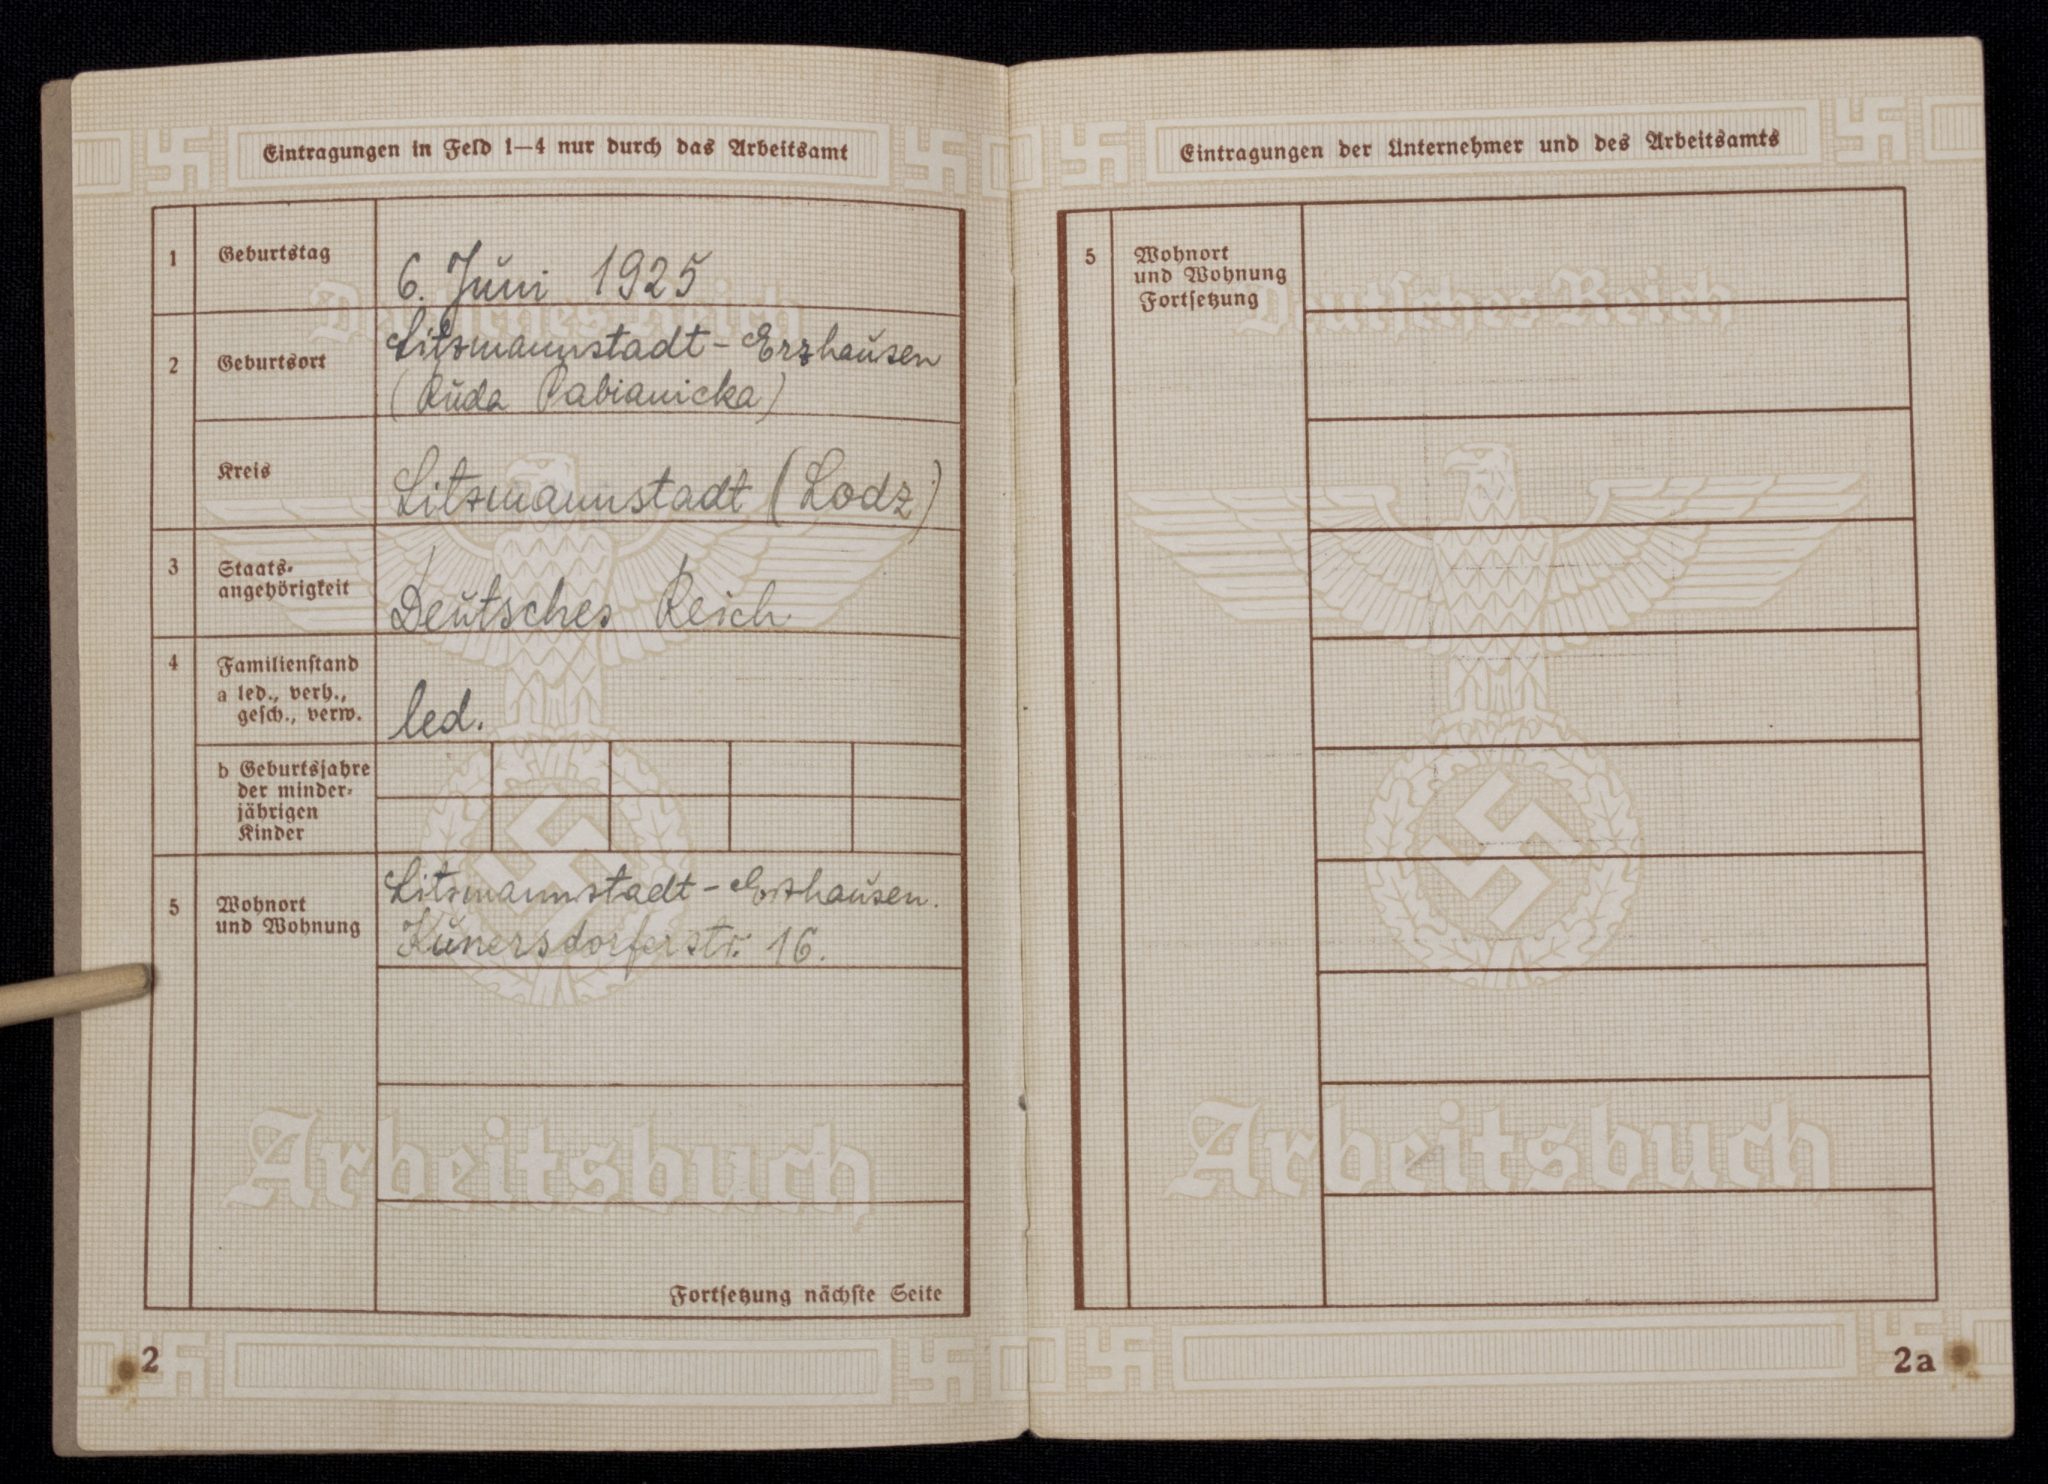 Eintragungen in Feld 1—4 nur durch das Arbeitsamt
Deutsches Reich
1 Geburtstag 6. Juni 1925
2 Geburtsort Litzmannstadt - Erzhausen
(Ruda Pabianicka)
Kreis Litzmannstadt (Lodz)
3 Staats-
angehörigkeit Deutsches Reich
4 Familienſtand
a led., verh.,
geſch., verw. led.
b Geburtsjahre
der minder-
jährigen
Kinder
5 Wohnort
und Wohnung
Litzmannstadt - Erzhausen.
Kunersdorferstr. 16.
Arbeitsbuch
Fortſetzung nächſte Seite
2
Eintragungen der Unternehmer und des Arbeitsamts
5 Wohnort
und Wohnung
Fortſetzung
Deutſches Reich
Arbeitsbuch
2a